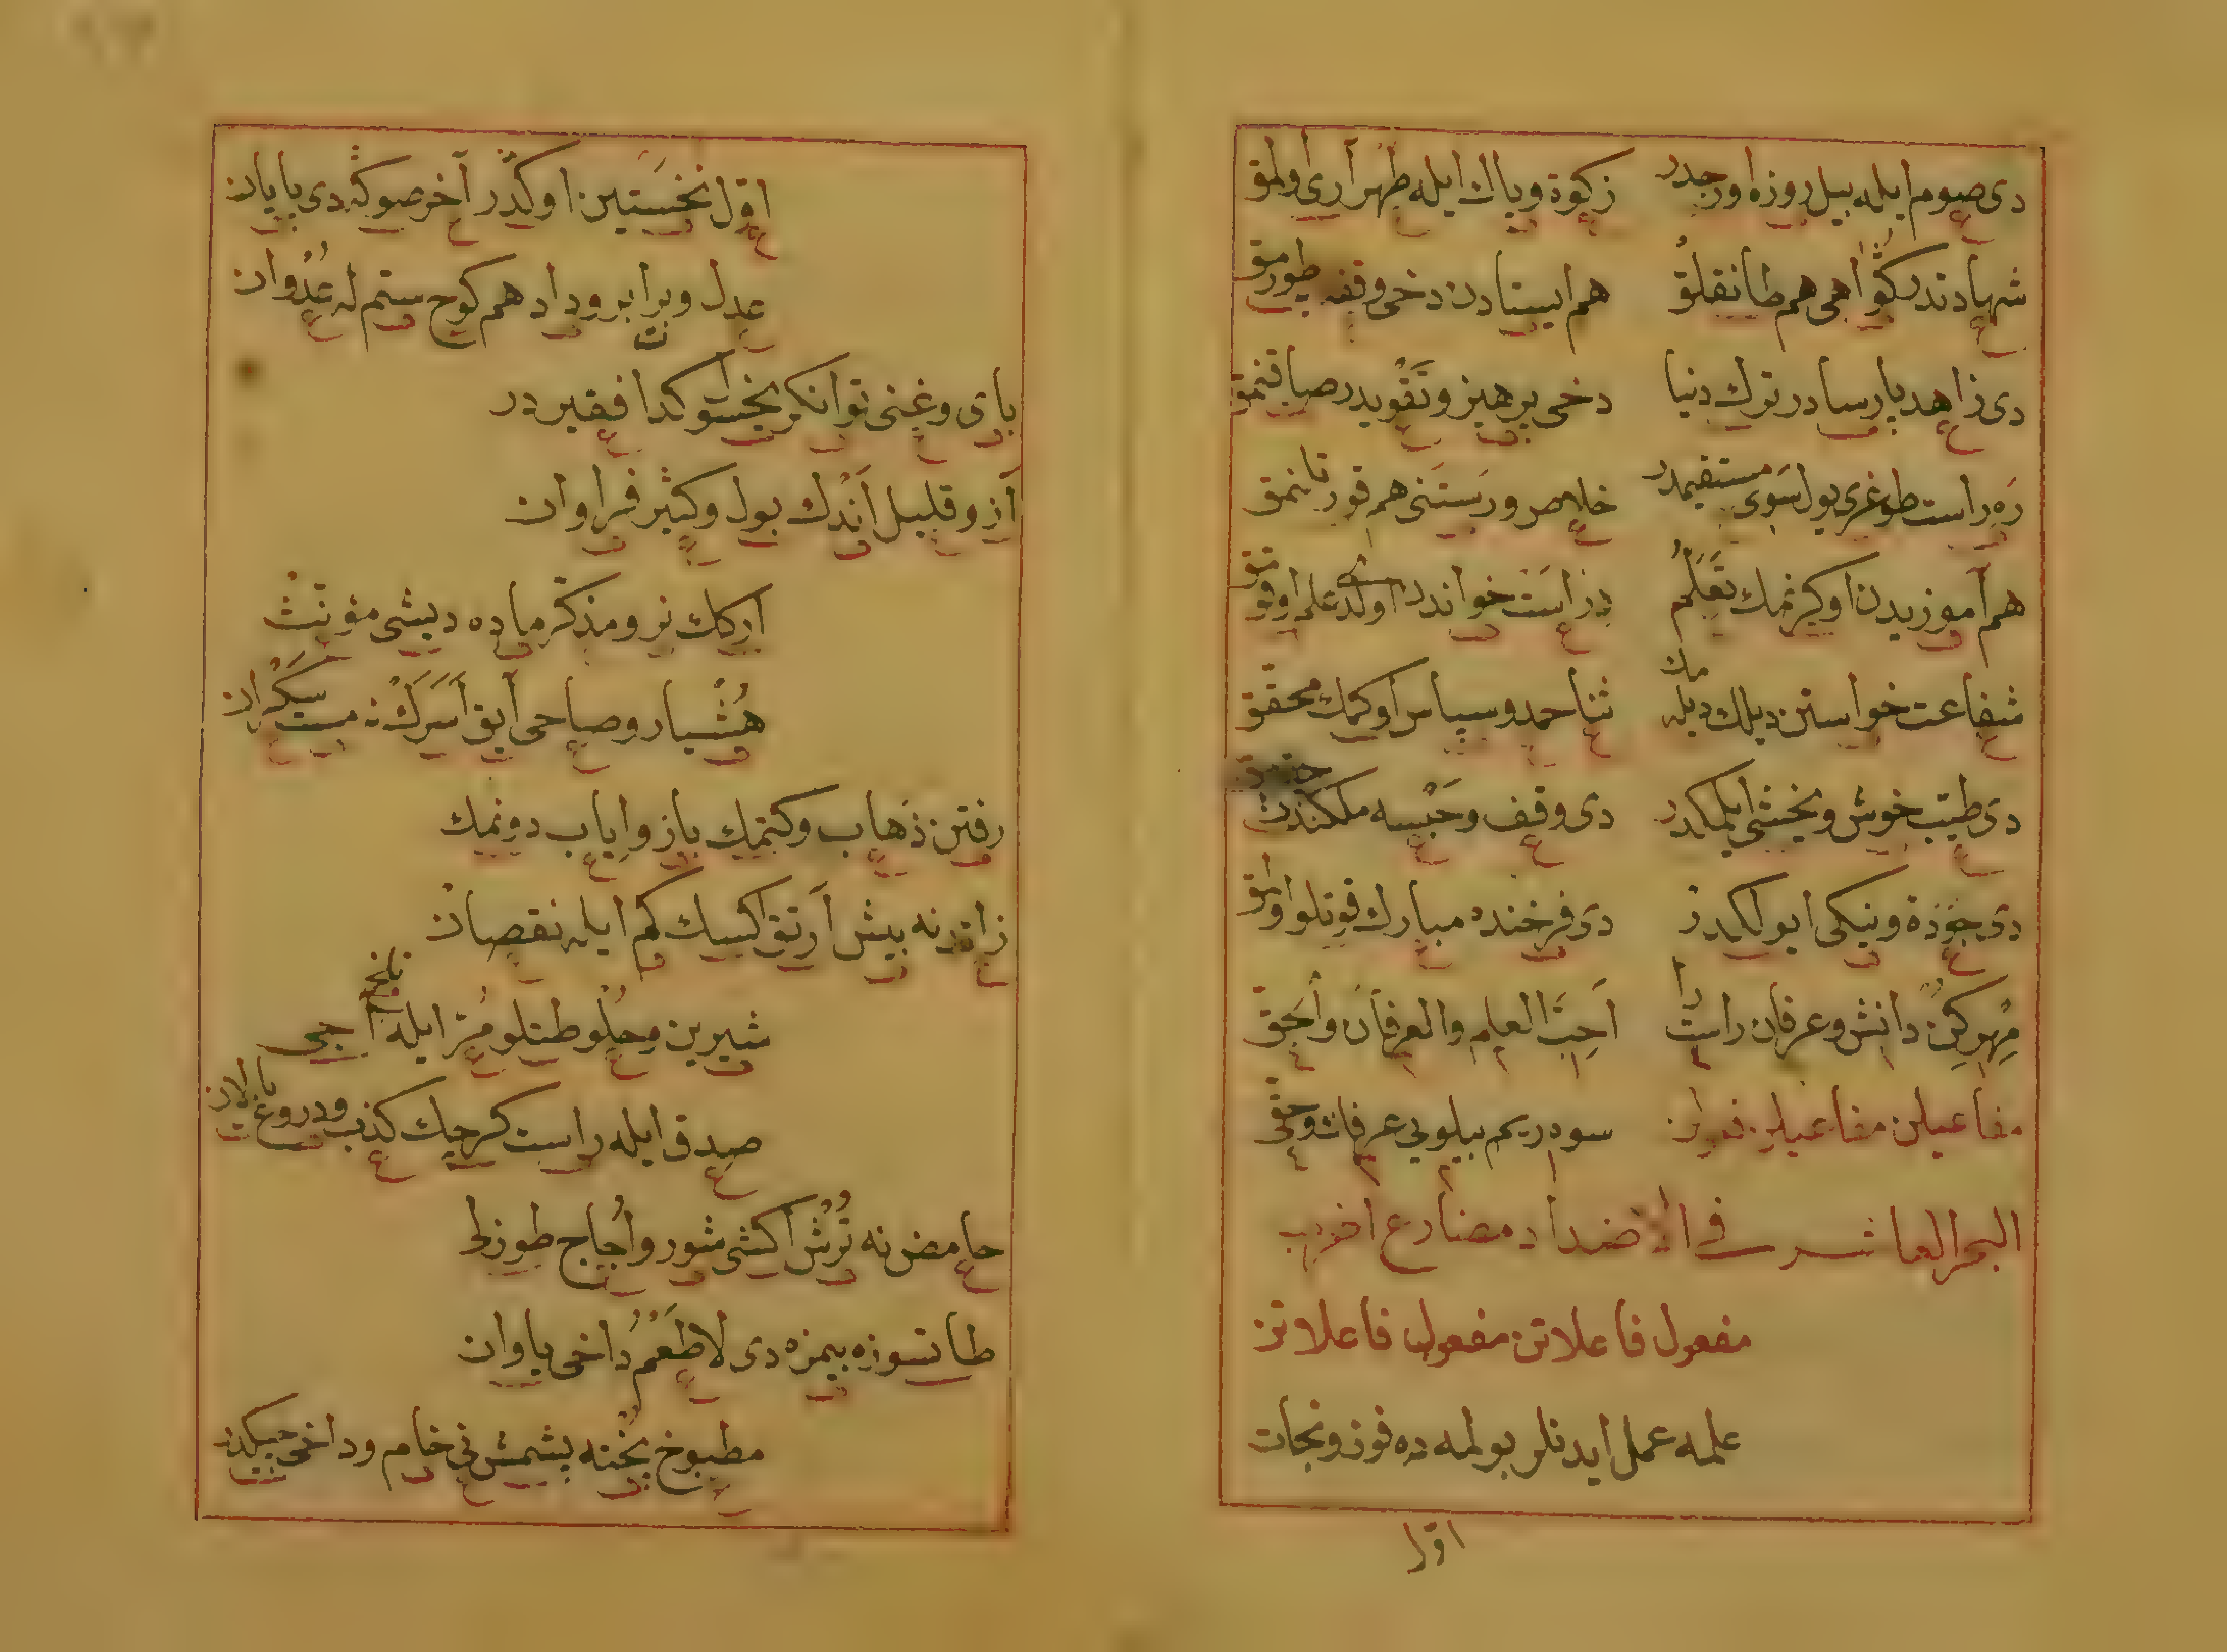 دی صوم ایله بیل روزه اورجدر زکوة و پاك ایله طهر آری اولمق
شهادتدر کواهی هم طانقلق هم ایستادن دخی وقفه طورمق
دی زاهد پارسادر ترك دنیا دخی پرهیز و تقویدر صاقنمق
ره راست طوغری یول سوی مستقیمدر خلاص و رستنی هم قورتانمق
هم آموزیدن اوکرنمك تعلم دراست خواندر اولدی علم اوقومق
شفاعت خواستن دیلك دیله مك ثنا حمد و سپاس اوکمك محقق
دی طیب خوش و بخشی ایلمکدر دی وقف و حبسه ملکندن
دی جودة و نیکی ایولکدر دی فرخنده مبارك قوتلو اولمق
مهر کن دانش و عرفان راست را احب العلم والعرفان وأحق
مفاعیلن مفاعیلن فعولن سودریم بیلویی عرفان وحقی
البحر العاشر فی الاضداد مضارع اخرب
مفعول فاعلاتن مفعول فاعلاتن
علمه عمل ایدنلر بولمه ده فوز و نجات
اول
اول نخستین اوکدر آخر صوکه دی پایان
عدل و برابر و داد هم کوج ستم له عدوان
بای و غنی توانکر یخسو کدا فقیردر
از و قلیل اندك بول و کثیر فراوان
ارکك نر و مذکر ماده دیشی مؤنث
هشیار و صاحی آیق اسرك نه مست سکران
رفتن ذهاب و کتمك باز و ایاب دونمك
زائد نه بیش آرتق اکسیك کم ایله نقصان
شیرین و حلو طتلو مز ایله آجی تلخ
صدق ایله راست کرجیك کذب و دروغ یالان
حامض نه ترش اکشی شور و اجاج طوزلو
طاتسوزه بیمزه دی لا طعم داخی یاوان
مطبوخ پخته پشمش نی خام و داخی جیکدر